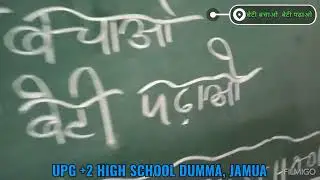 बेटी बचाओ बेटी पढाओ
बचाओ
बेटी पढ़ाओ
UPG +2 HIGH SCHOOL DUMMA, JAMUA
FILMIGO